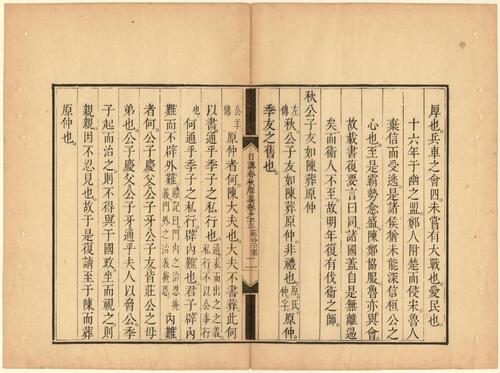 厚也兵車之會四未嘗有大戰也愛民也
十六年于幽之盟鄭人附楚而侵宋魯人
棄信而受逃是諸侯猶未能深信桓公之
心也至是霸勢愈盛陳鄭協服魯亦與會
故載書復要言曰同諸國蓋自是無離過
矣而衞人不至故明年復有伐衞之師
秋公子友如陳葬原仲
左傳秋公子友如陳葬原仲非禮也原氏仲字原仲
季友之舊也
日講春秋解義卷十三
公羊傳原仲者何陳大夫也大夫不書葬此何
以書通乎季子之私行也通表而出之之義私行不以公事行
也何通乎季子之私行辟內難也君子辟內
難而不辟外難禮記曰門內之治恩揜義門外之治義斷恩內難
者何公子慶父公子牙公子友皆莊公之母
弟也公子慶父公子牙通乎夫人以脅公季
子起而治之則不得與于國政坐而視之則
親親因不忍見也故于是復請至于陳而葬
原仲也